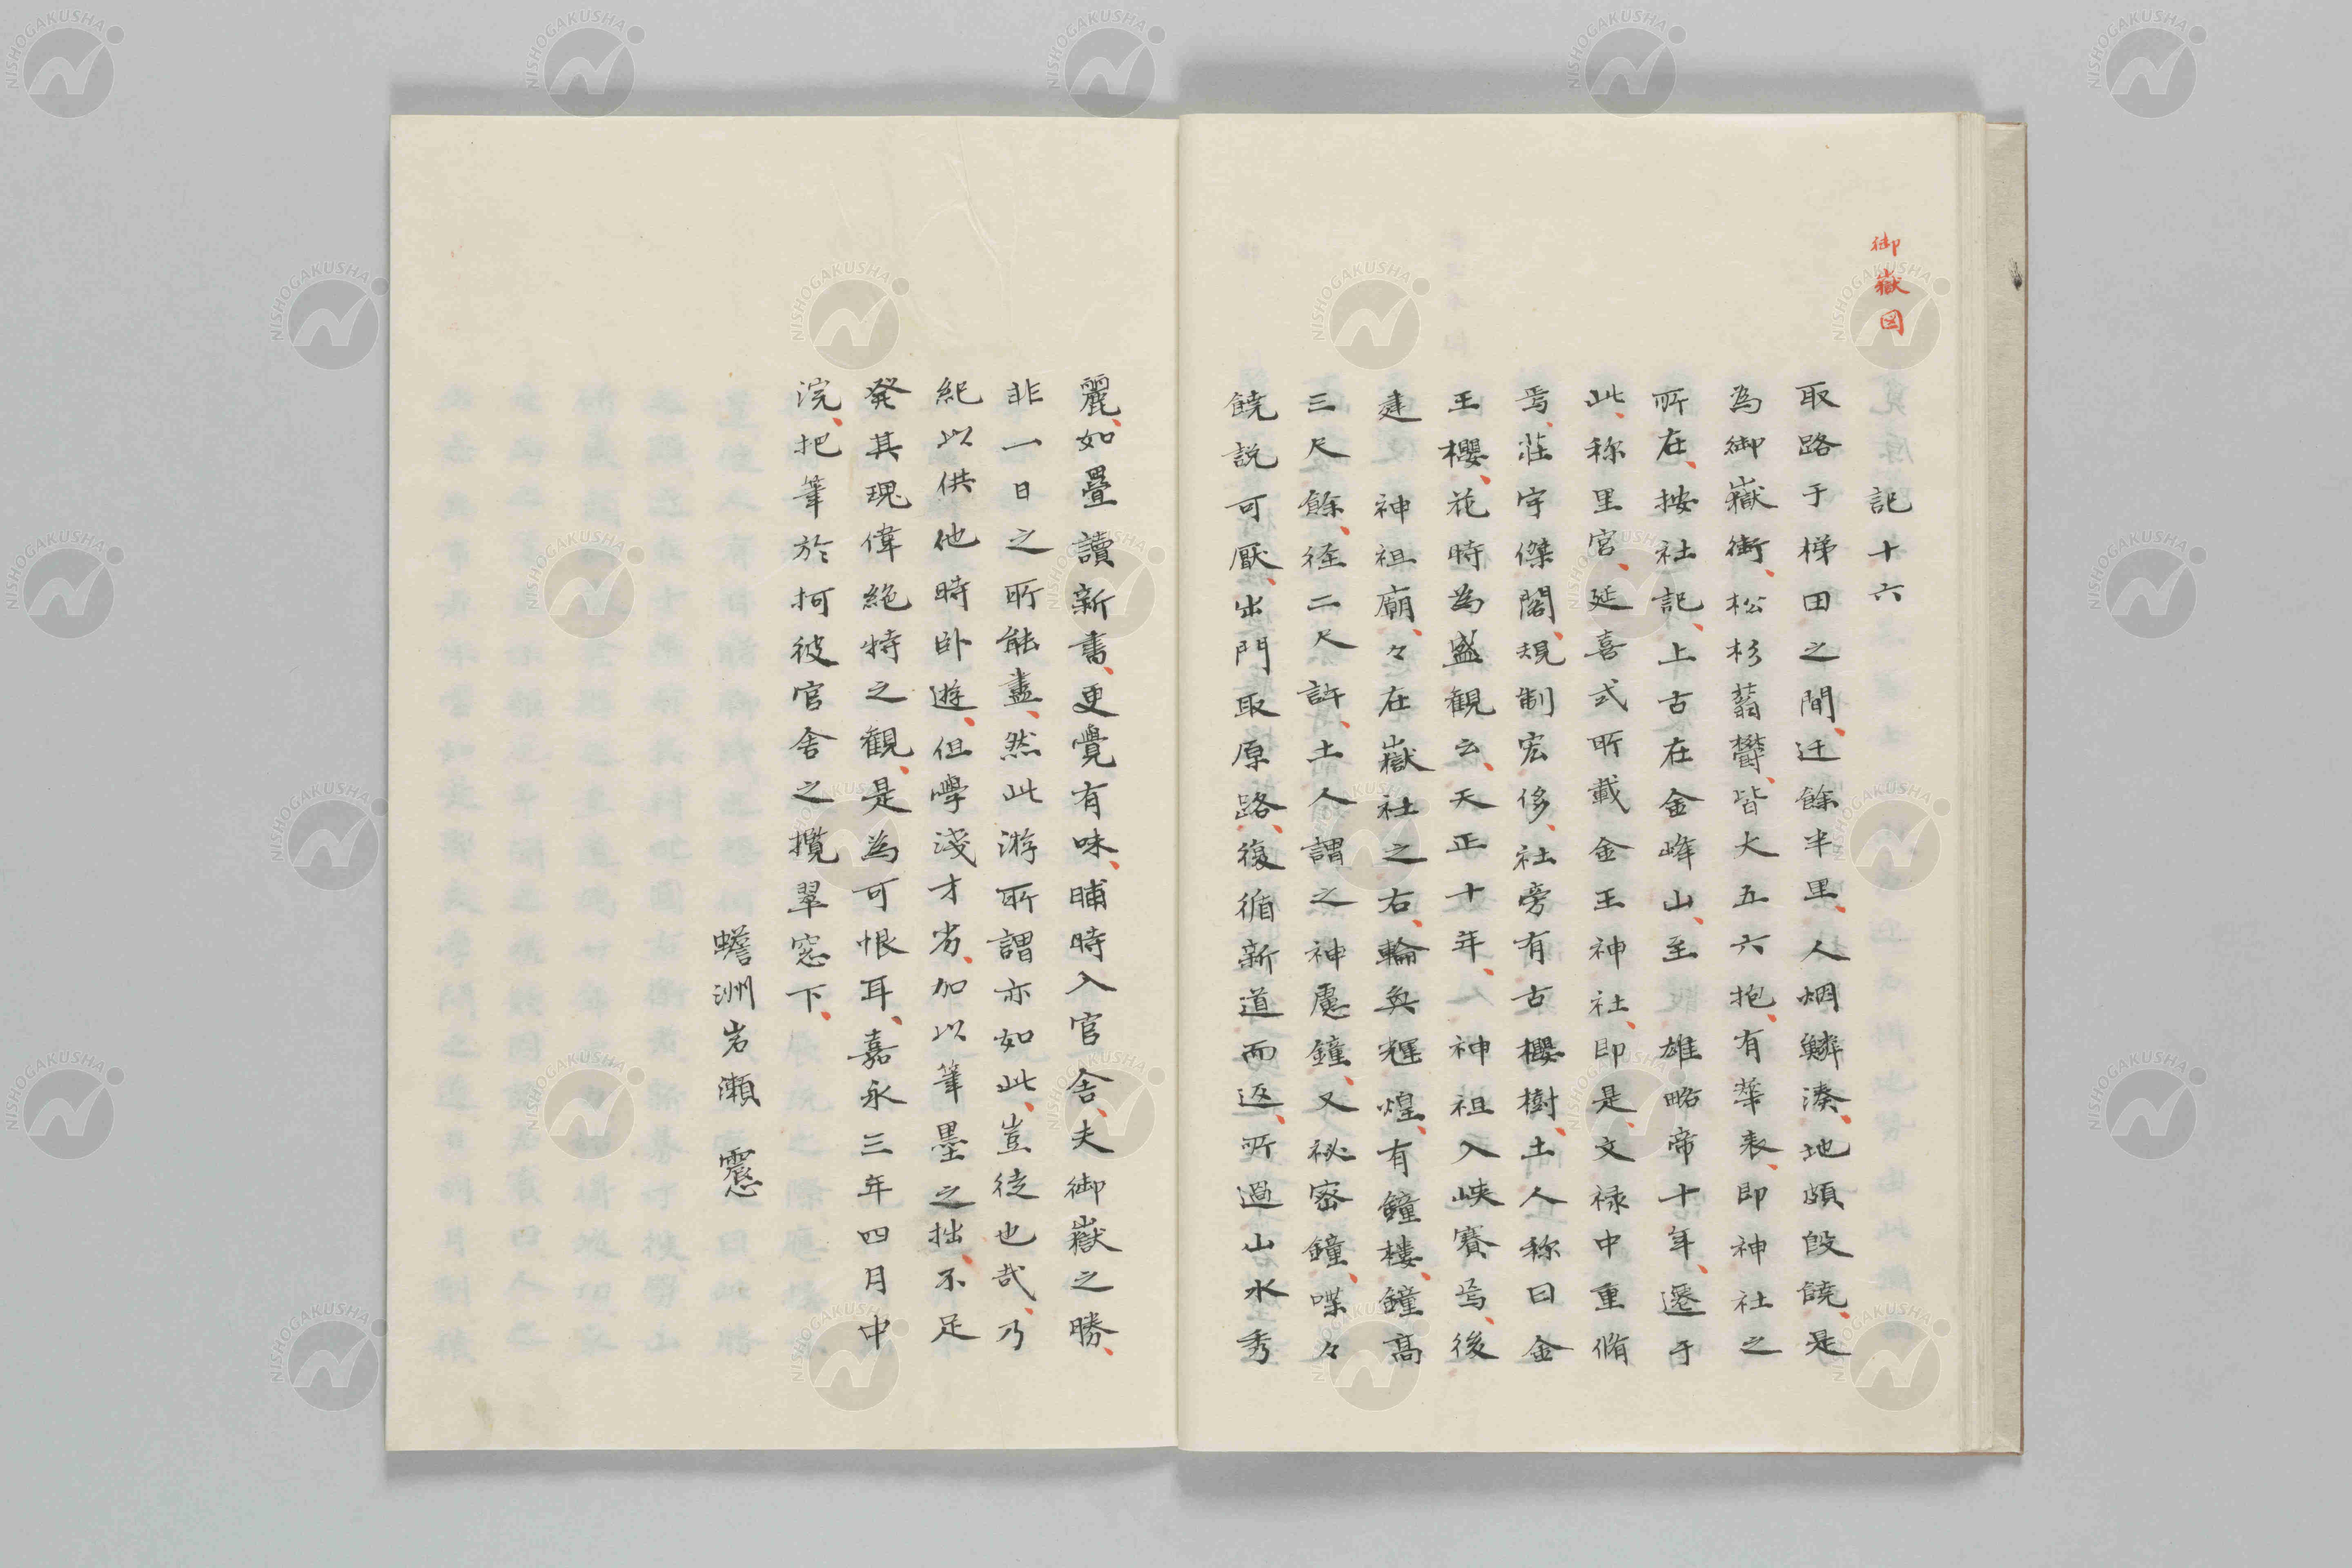 御嶽図
記十六
取路于梯田之間、迂餘半里、人烟鱗湊、地頗殷饒、是
為御嶽街、松杉蓊鬱、皆大五六抱、有華表、即神社之
所在、按社記、上古在金峰山、至　雄略帝十年、遷于
此、称里宮、延喜式所載金王神社、即是、文禄中重脩
焉、莊宇傑閣、規制宏侈、社旁有古櫻樹、土人称曰金
王櫻、花時為盛観云、天正十年、　神祖入峡賽焉、後
建　神祖廟、々在嶽社之右、輪奐輝煌、有鐘樓、鐘高
三尺餘、径二尺許、土人謂之神慮鐘、又秘密鐘、喋々
饒説可厭、出門取原路、復循新道而返、所過山水秀
麗、如疊讀新書、更覺有味、晡時入官舎、夫御嶽之勝、
非一日之所能盡、然此游所謂亦如此、豈徒也哉、乃
紀以供他時卧遊、但學淺才劣、加以筆墨之拙、不足
発其瑰偉絶特之觀、是為可恨耳、嘉永三年四月中
浣、把筆於柯彼官舎之攬翠窓下、
蟾洲岩瀬　震
NISHOGAKUSHA